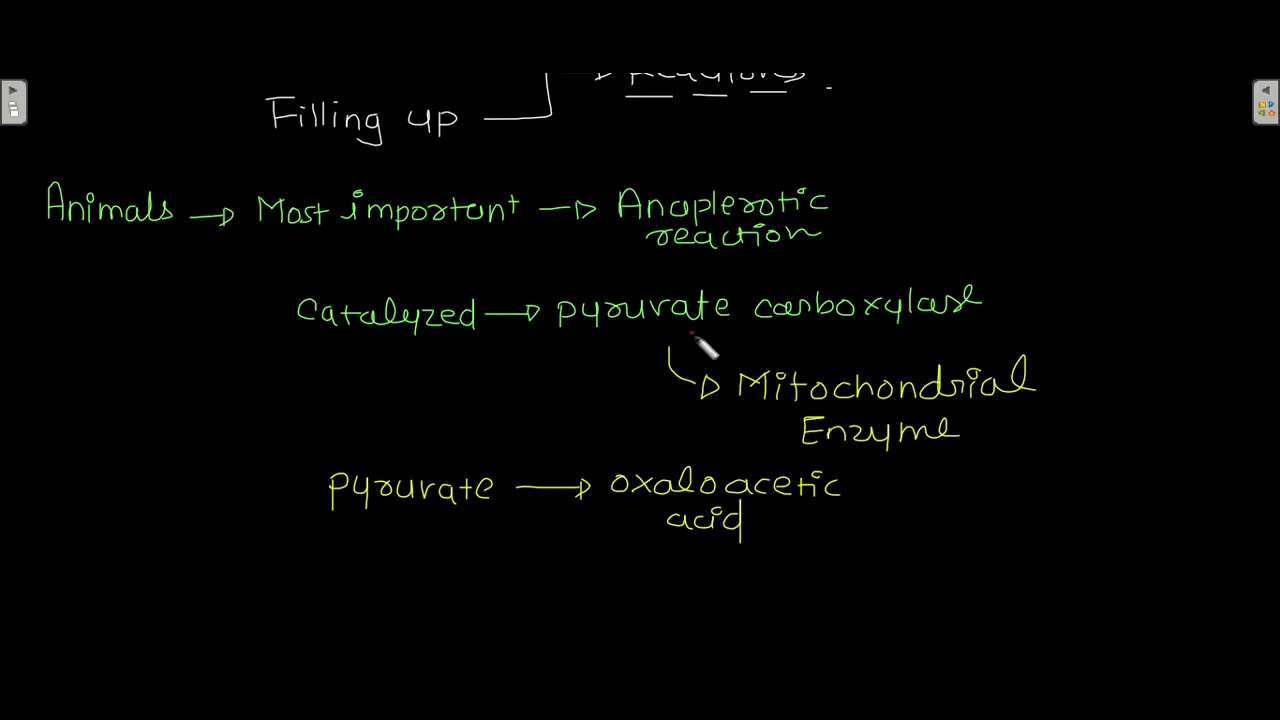 Reactions
Filling up
Animals → Most important → Anaplerotic
reaction
Catalyzed → pyruvate carboxylase
Mitochondrial
Enzyme
pyruvate → oxaloacetic
acid